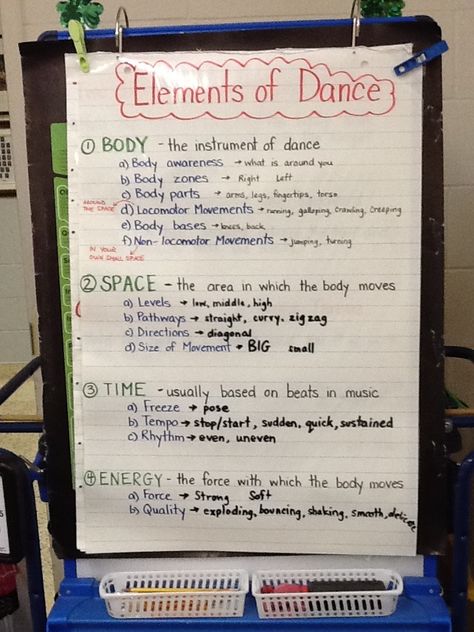 Elements of Dance
① BODY - the instrument of dance
a) Body awareness → what is around you
b) Body zones → Right Left
c) Body parts → arms, legs, fingertips, torso
AROUND THE SPACE
d) Locomotor Movements → running, galloping, crawling, creeping
e) Body bases → knees, back,
f) Non-locomotor Movements → jumping, turning
IN YOUR OWN SMALL SPACE
② SPACE - the area in which the body moves
a) Levels → low, middle, high
b) Pathways → straight, curry, zig zag
c) Directions → diagonal
d) Size of Movement → BIG small
③ TIME - usually based on beats in music
a) Freeze → pose
b) Tempo → stop/start, sudden, quick, sustained
c) Rhythm → even, uneven
④ ENERGY - the force with which the body moves
a) Force → Strong Soft
b) Quality → exploding, bouncing, shaking, smooth,